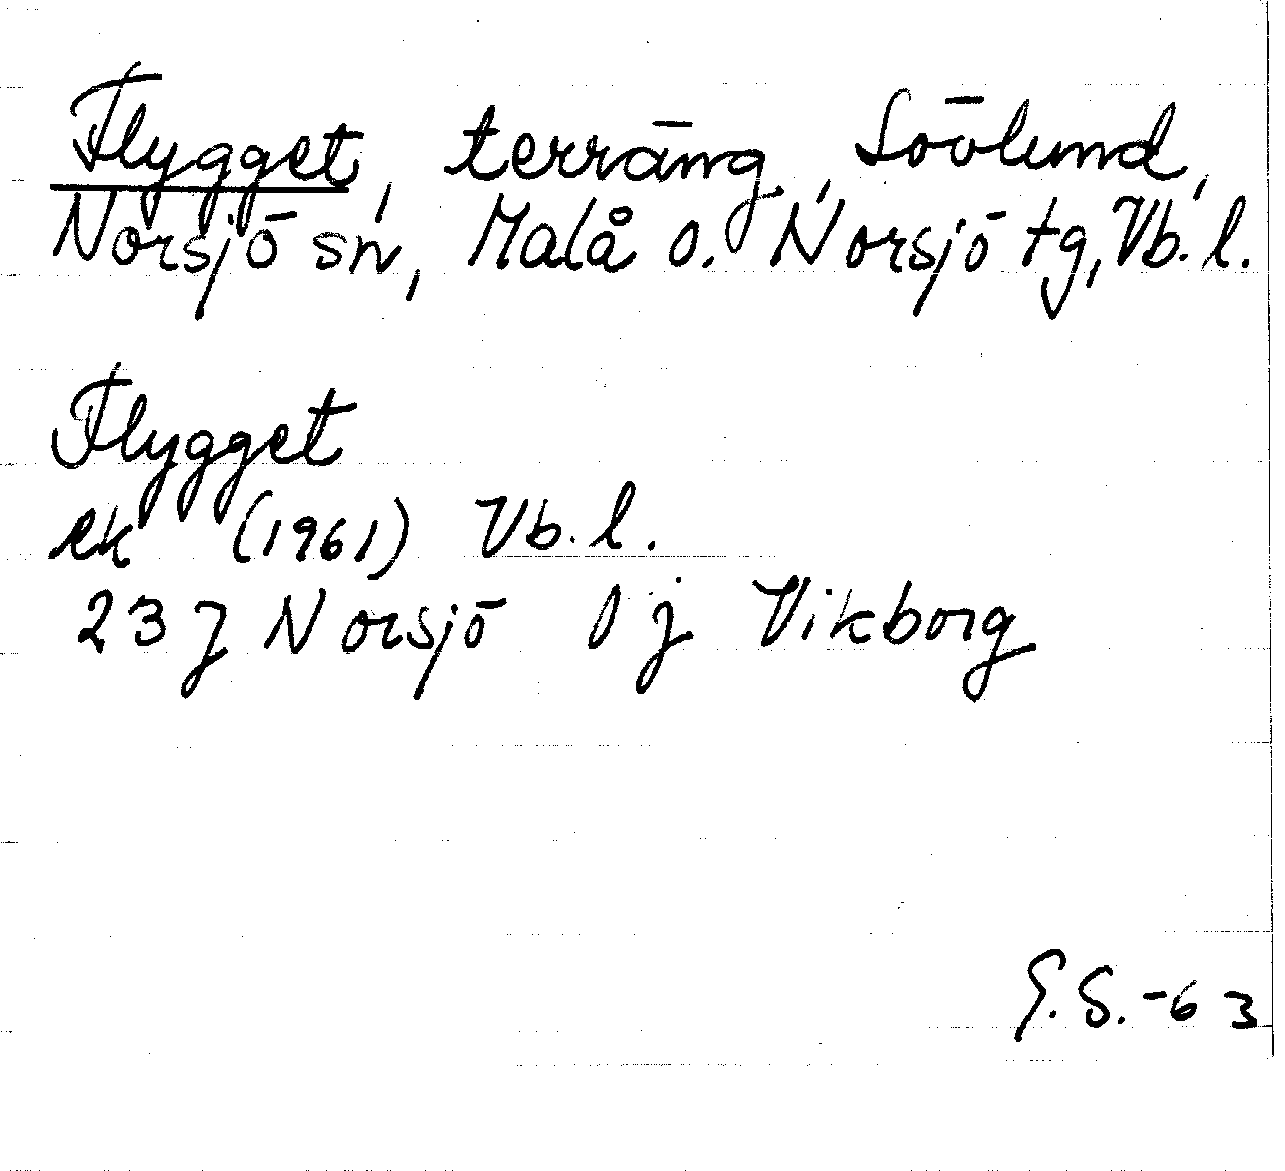 Flygget, terräng, Sövlund,
Norsjö sn, Malå o. Norsjö tg, Vb. l.
Flygget
ek (1961) Vb. l.
23 J Norsjö 0 j Vikborg
G.S.-63